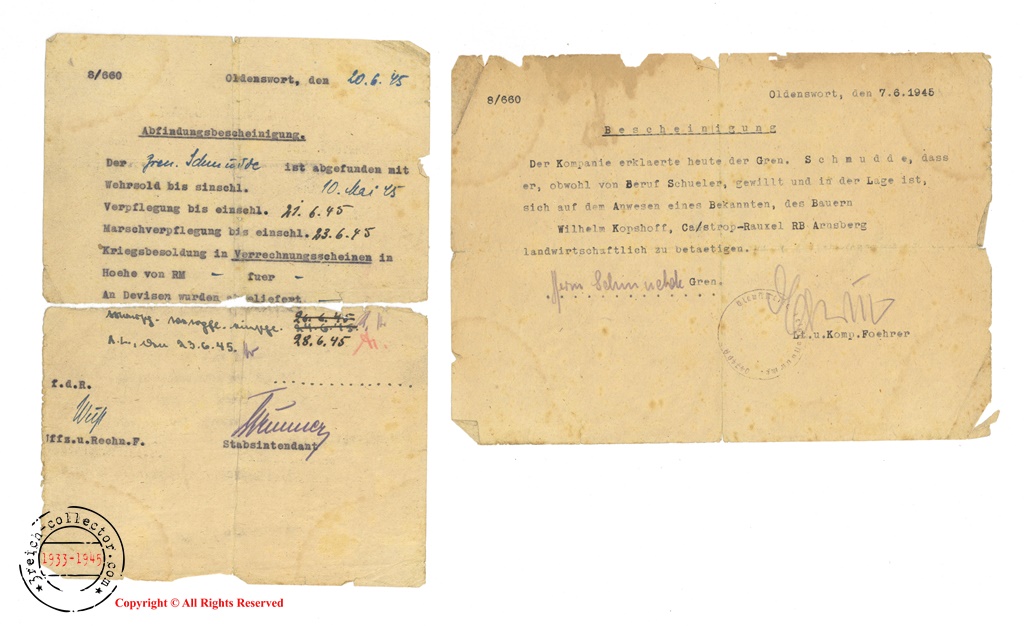 8/660
Oldenswort, den 20.6.45
Abfindungsbescheinigung.
Der Gren. Schmudde ist abgefunden mit
Wehrsold bis einschl. 10. Mai 45
Verpflegung bis einschl. 21.6.45
Marschverpflegung bis einschl. 23.6.45
Kriegsbesoldung in Verrechnungsscheinen in
Hoehe von RM - fuer -
An Devisen wurden abgeliefert. -
26.6.45
24.6.45
den 23.6.45. 28.6.45
f.d.R.
Uffz.u.Rechn.F.
Stabsintendant
8/660
Oldenswort, den 7.6.1945
Bescheinigung
Der Kompanie erklaerte heute der Gren. Schmudde, dass
er, obwohl von Beruf Schueler, gewillt und in der Lage ist,
sich auf dem Anwesen eines Bekannten, des Bauern
Wilhelm Kopshoff, Ca/strop-Rauxel RB Arnsberg
landwirtschaftlich zu betaetigen.
Herm Schmudde Gren.
Lt.u.Komp.Foehrer
3reich-collector.com
1933-1945
Copyright © All Rights Reserved